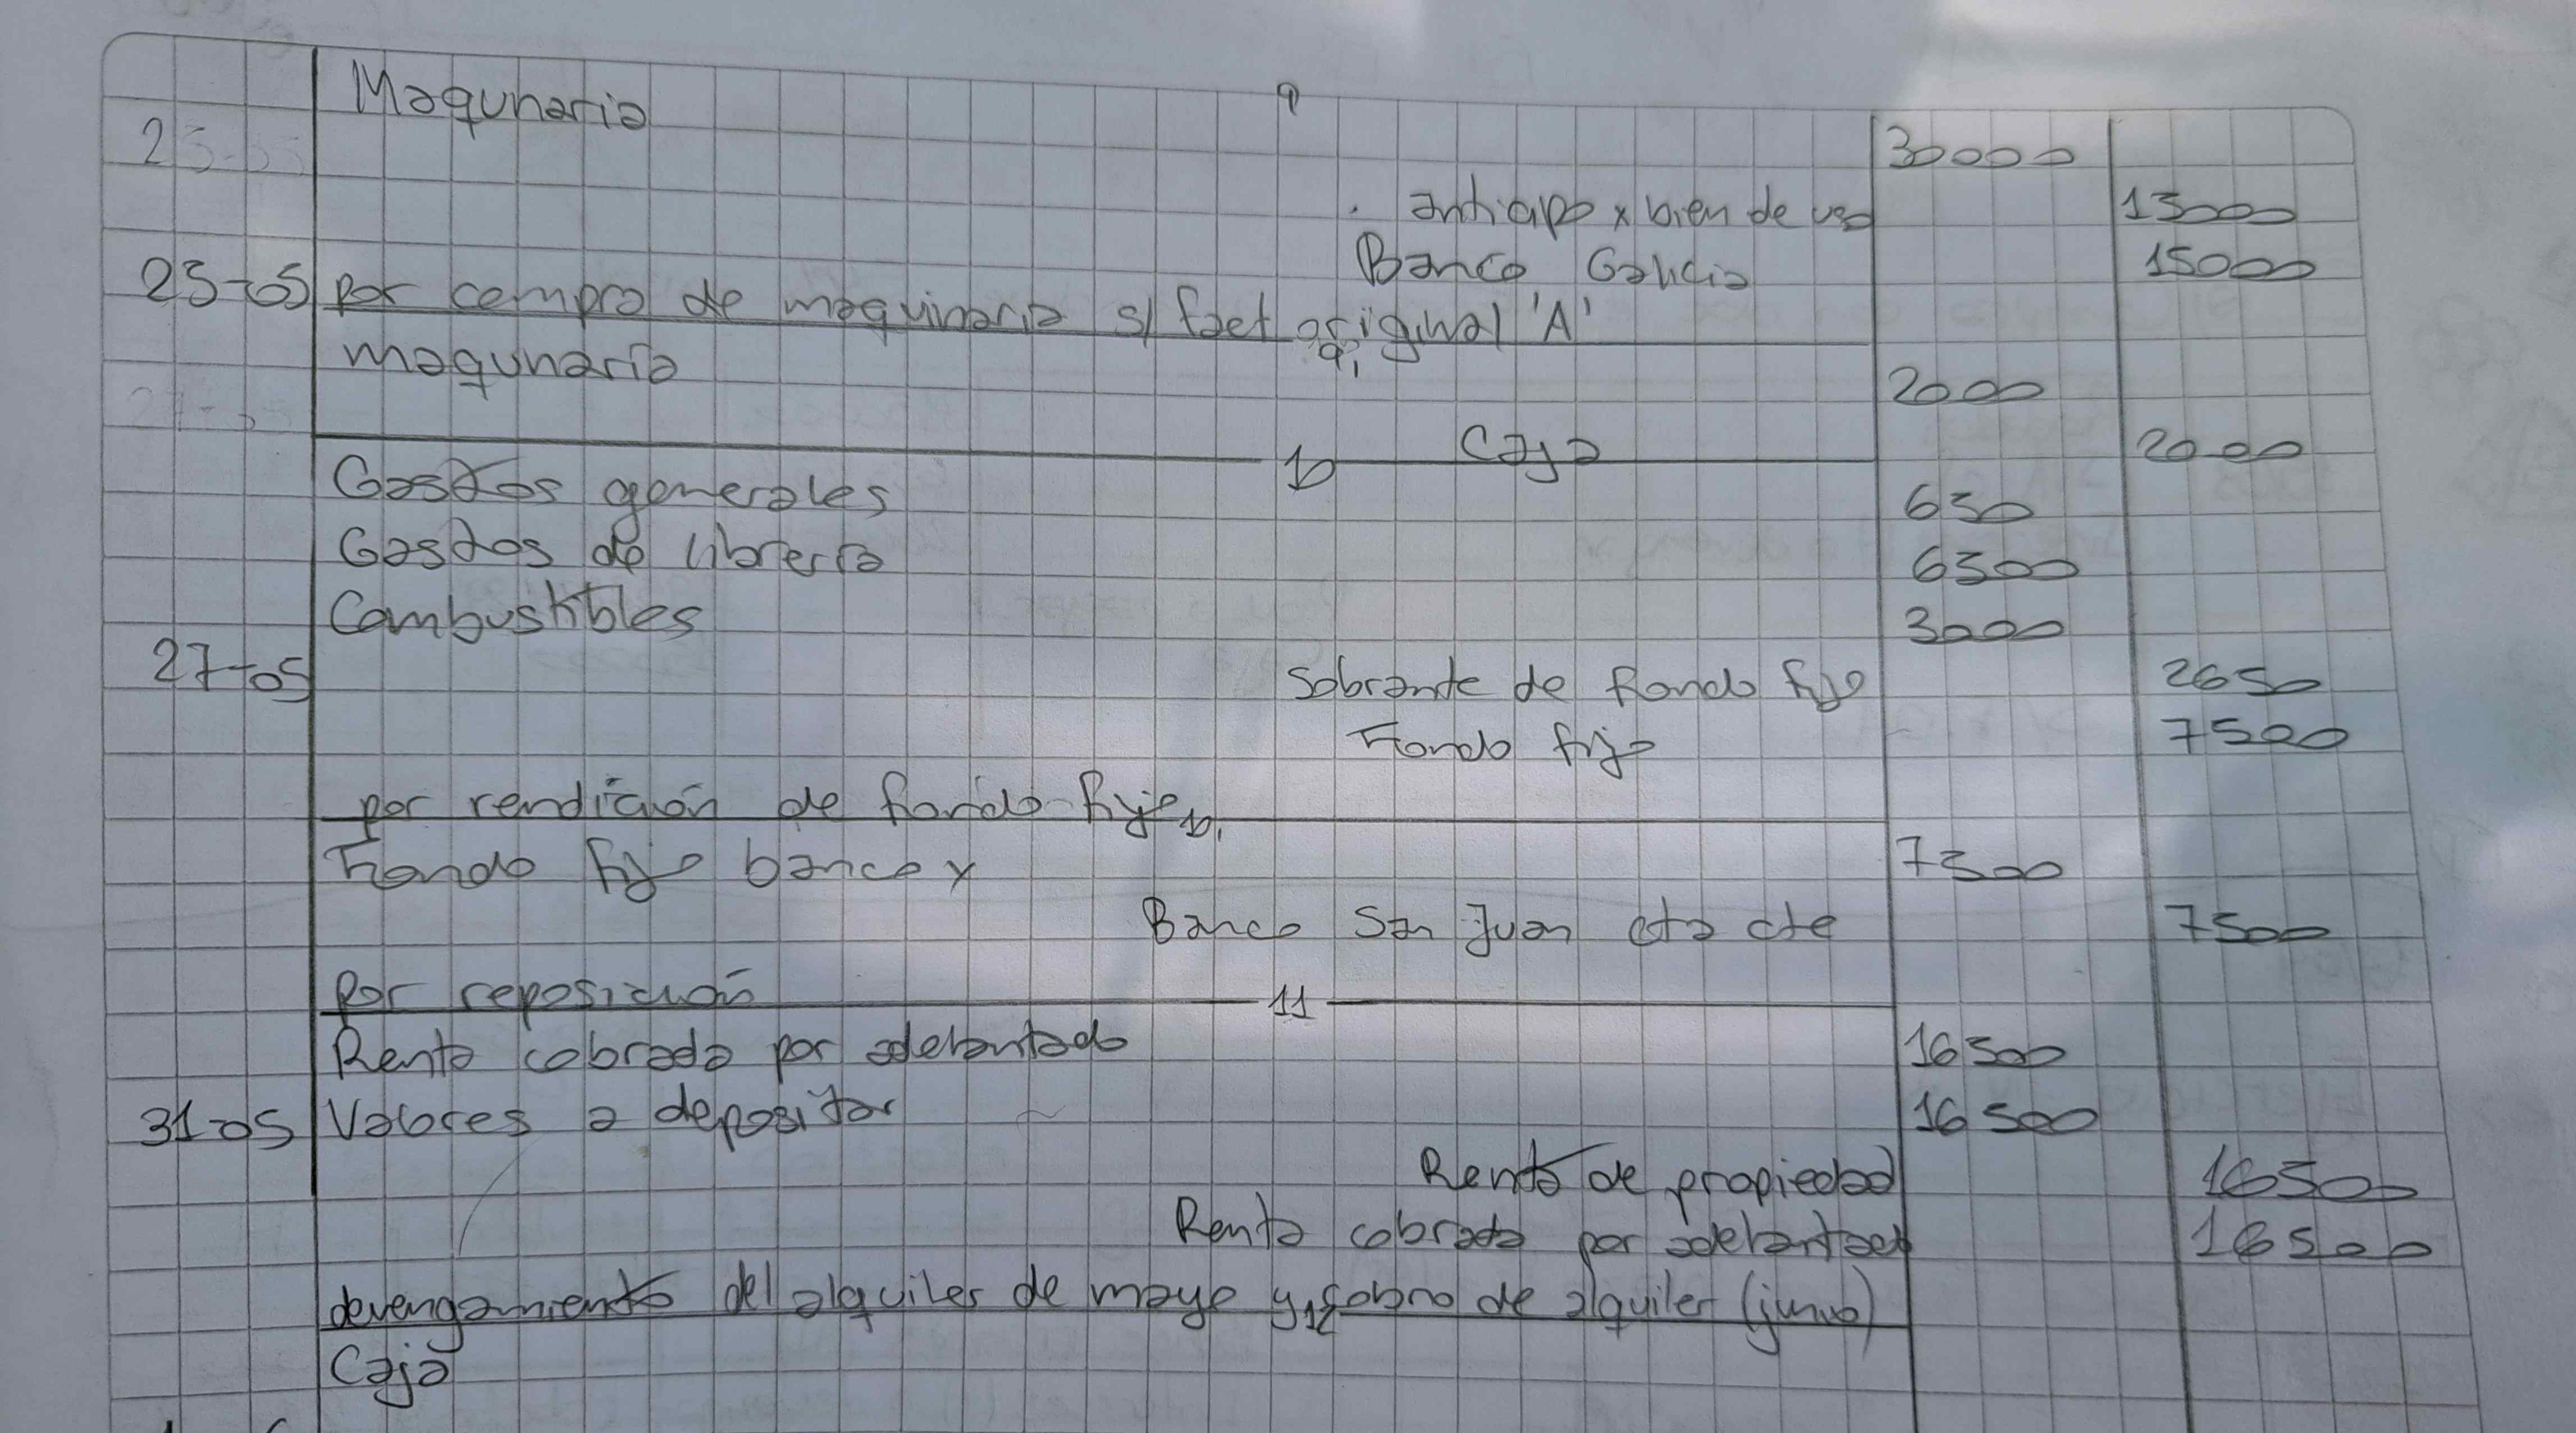 9
Maqunaria 30000
anticipo x bien de uso 15000
Banco Galicia 15000
25-05 por compra de maquinaria s/ fact original 'A'
9,
maqunaria 2000
Caja 2000
10
Gastos generales 650
Gastos de libreria 6500
Combustibles 3000
27-05 Sobrante de fondo fijo 2650
Fondo fijo 7500
por rendición de fondo fijo
10,
Fondo fijo banco x 7500
Banco San Juan cta cte 7500
por reposición
11
Renta cobrada por adelantado 16500
31-05 Valores a depositar 16500
Renta de propiedad 16500
Renta cobrada por adelantad 16500
devengamiento del alquiler de mayo y cobro de alquiler (junio)
12
Caja